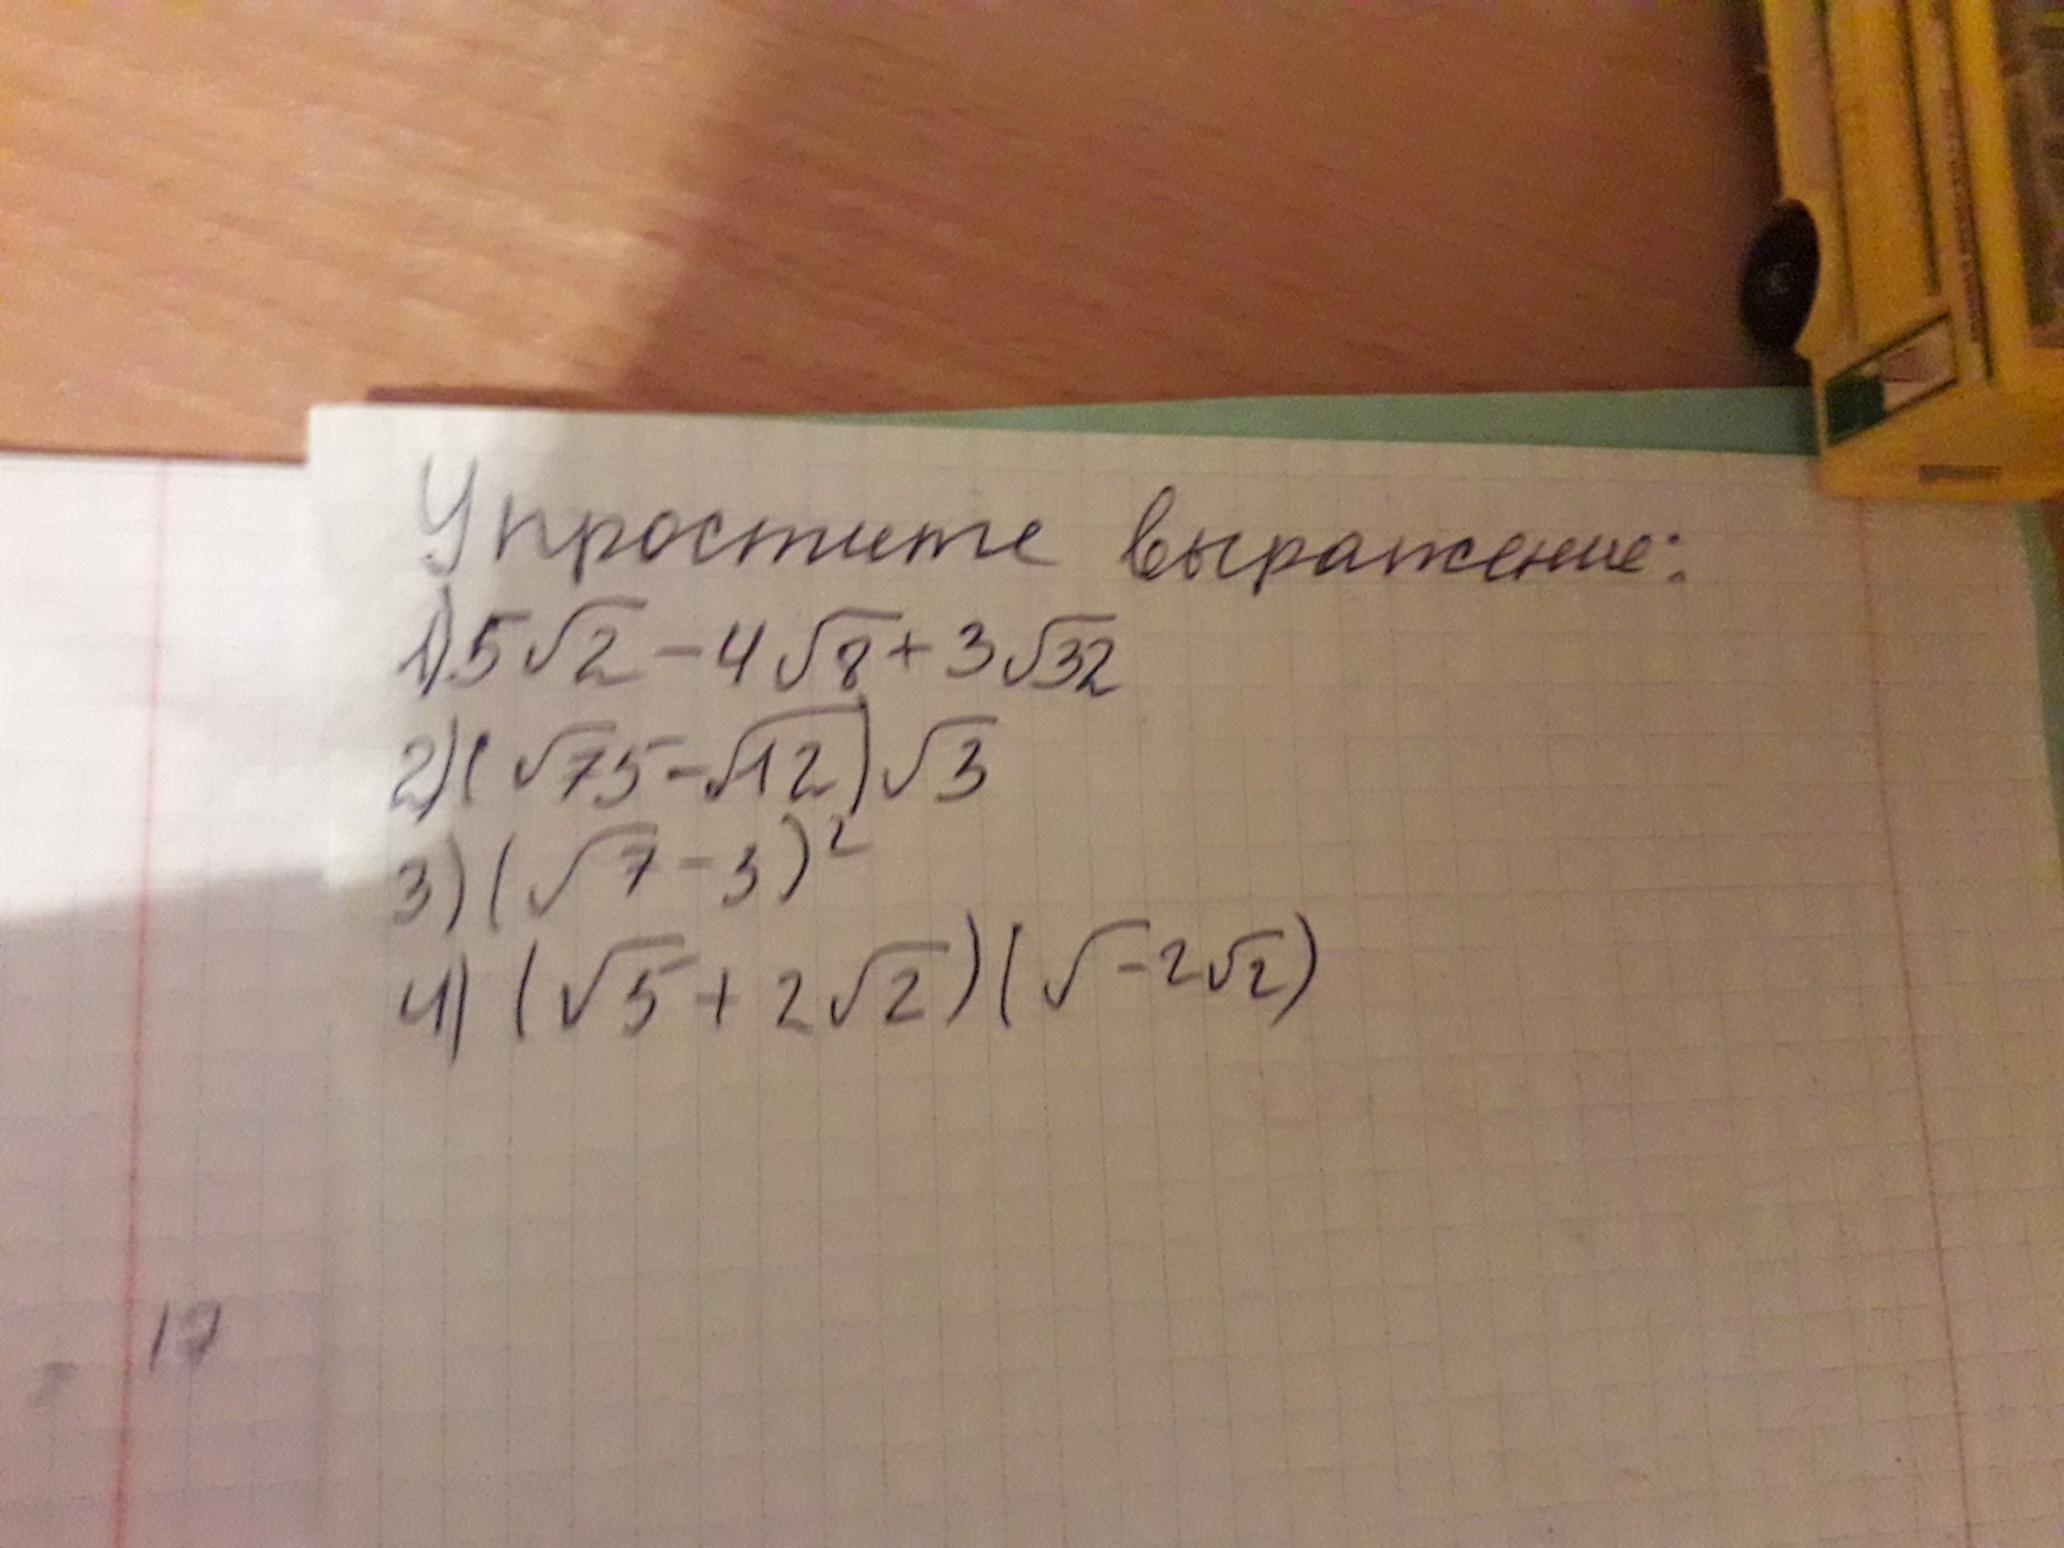 Упростите выражение:
1) 5√2 - 4√8 + 3√32
2) (√75 - √12)√3
3) (√7 - 3)²
4) (√5 + 2√2)(√ - 2√2)
17